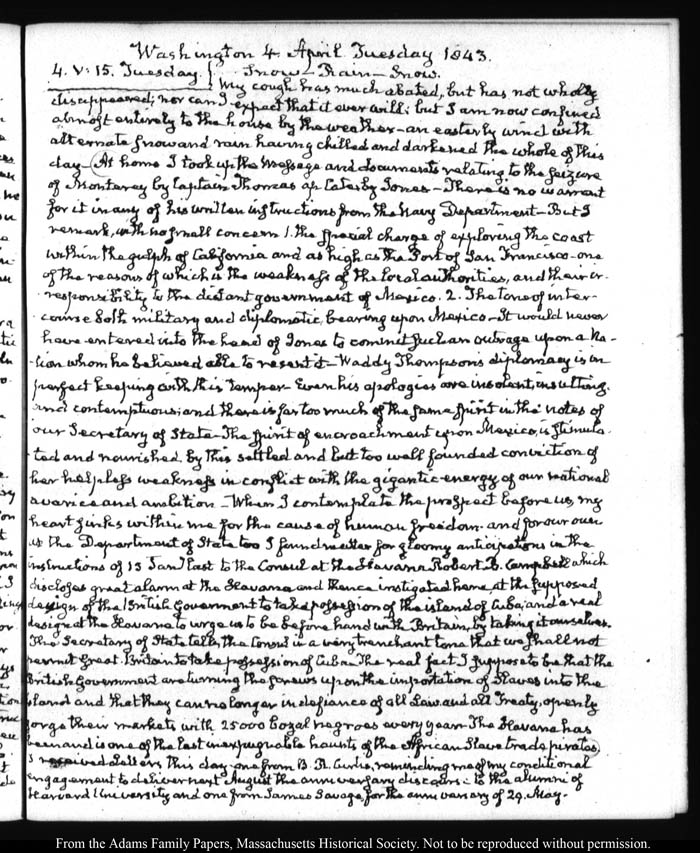 Washington 4. April. Tuesday 1843.
4. V: 15. Tuesday. Snow — Rain — Snow.
My cough has much abated, but has not wholly
disappeared; nor can I expect that it ever will; but I am now confined
almost entirely to the house by the weather — an easterly wind with
alternate snow and rain having chilled and darkened the whole of this
day — (At home I took up the Message and documents relating to the seizure
of Monterey by Captain Thomas ap Catesby Jones — There is no warrant
for it in any of his written instructions from the Navy Department — But I
remark, with no small concern 1. the special charge of exploring the coast
within the gulph of California and as high as the Port of San Francisco — one
of the reasons of which is the weakness of the local authorities, and their ir-
responsibility to the distant government of Mexico. 2. The tone of inter-
course both military and diplomatic, bearing upon Mexico — It would never
have entered into the head of Jones to commit such an outrage upon a Na-
tion whom he believed able to resent it — Waddy Thompson's diplomacy is in
perfect keeping with this temper — Even his apologies are insolent, insulting
and contemptuous; and there is far too much of the same spirit in the notes of
our Secretary of State — The spirit of encroachment upon Mexico, is stimula-
ted and nourished by this settled and but too well founded conviction of
her helpless weakness in conflict with the gigantic energy of our national
avarice and ambition — When I contemplate the prospect before us, my
heart sinks within me for the cause of human freedom, and for our own
at the Department of State too I found matter for gloomy anticipations in the
instructions of 15 Jany last to the Consul at the Havana Robert B. Campbell which
discloses great alarm at the Havana and thence instigated here, at the supposed
design of the British Government to take possession of the island of Cuba; and a real
design at the Havana to urge us to be before hand with Britain, by taking it ourselves.
The Secretary of State tells the Consul in a very trenchant tone that we shall not
permit Great Britain to take possession of Cuba. The real fact I suppose to be that the
British Government are turning the screws upon the importation of Slaves into the
island and that they can no longer in defiance of all Law and all Treaty, openly
gorge their markets with 25000 bozal negroes every year — The Havana has
been and is one of the last inexpugnable haunts of the African Slave trade pirates)
I received Letters this day — one from B. R. Curtis, reminding me of my conditional
engagement to deliver next August the anniversary discourse to the alumni of
Harvard University and one from James Savage, for the anniversary of 29. May.
From the Adams Family Papers, Massachusetts Historical Society. Not to be reproduced without permission.